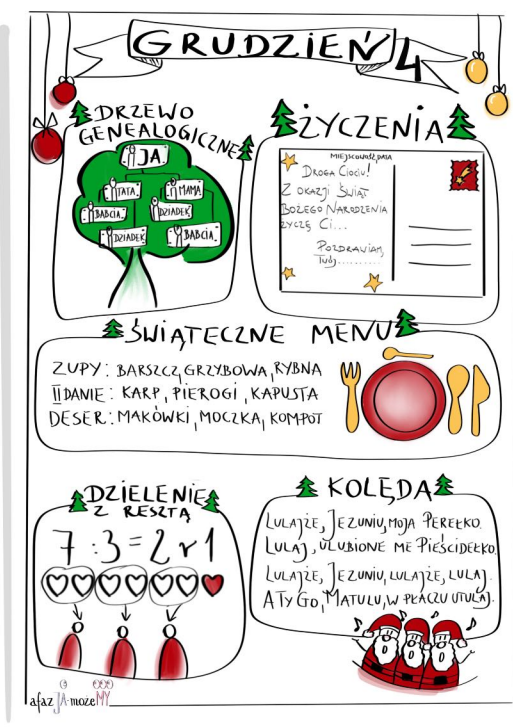 GRUDZIEŃ 4
DRZEWO
GENEALOGICZNE
JA
TATA
MAMA
BABCIA
DZIADEK
DZIADEK
BABCIA
ŻYCZENIA
MIEJSCOWOŚĆ, DATA
DROGA CIOCIU!
Z OKAZJI ŚWIĄT
BOŻEGO NARODZENIA
ŻYCZĘ CI...
POZDRAWIAM,
TWÓJ..........
ŚWIĄTECZNE MENU
ZUPY: BARSZCZ, GRZYBOWA, RYBNA
II DANIE: KARP, PIEROGI, KAPUSTA
DESER: MAKÓWKI, MOCZKA, KOMPOT
DZIELENIE
Z RESZTĄ
7 : 3 = 2 r 1
KOLĘDA
LULAJŻE, JEZUNIU, MOJA PEREŁKO.
LULAJ, ULUBIONE ME PIEŚCIDEŁKO.
LULAJŻE, JEZUNIU, LULAJŻE, LULAJ.
A TY GO, MATULU, W PŁACZU UTULAJ.
afaz JA-może MY